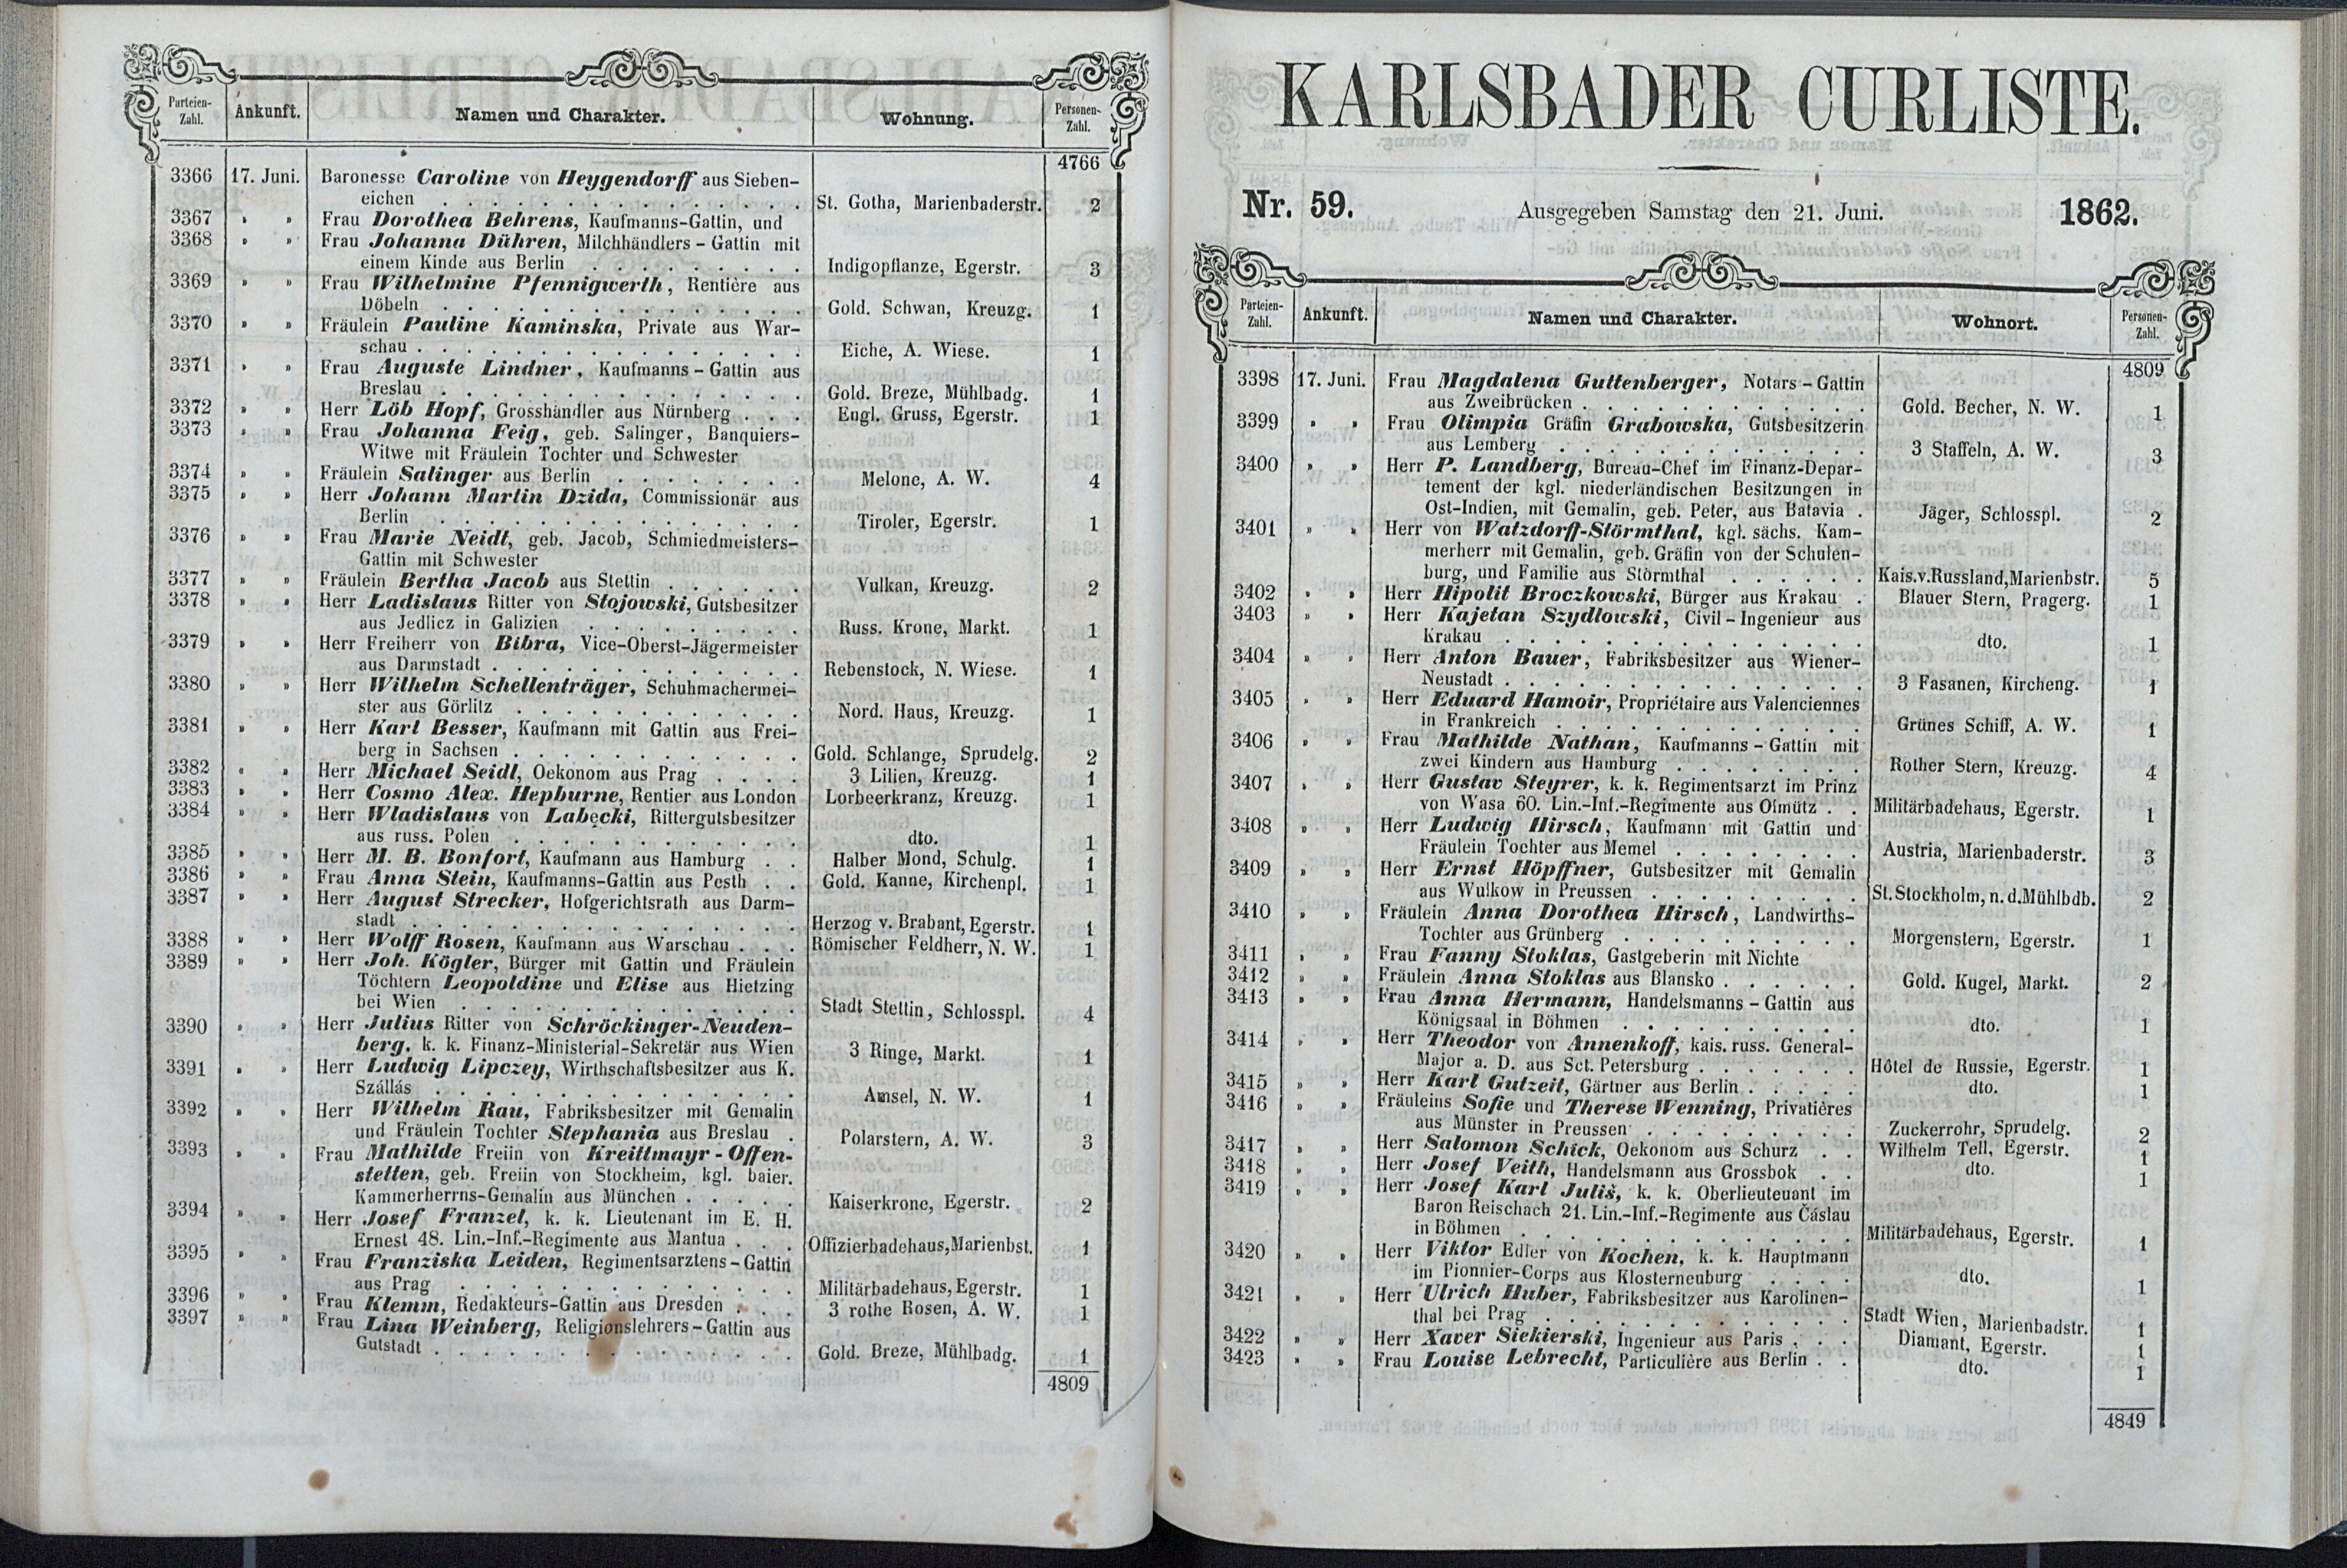 Parteien-Zahl. Ankunft. Namen und Charakter. Wohnung. Personen-Zahl.
4766
3366 17. Juni. Baronesse Caroline von Heygendorff aus Sieben-
eichen . . . St. Gotha, Marienbaderstr. 2
3367 » » Frau Dorothea Behrens, Kaufmanns-Gattin, und
3368 » » Frau Johanna Dühren, Milchhändlers-Gattin mit
einem Kinde aus Berlin . . . Indigopflanze, Egerstr. 3
3369 » » Frau Wilhelmine Pfennigwerth, Rentière aus
Döbeln . . . Gold. Schwan, Kreuzg. 1
3370 » » Fräulein Pauline Kaminska, Private aus War-
schau . . . Eiche, A. Wiese. 1
3371 » » Frau Auguste Lindner, Kaufmanns-Gattin aus
Breslau . . . Gold. Breze, Mühlbadg. 1
3372 » » Herr Löb Hopf, Grosshändler aus Nürnberg . . . Engl. Gruss, Egerstr. 1
3373 » » Frau Johanna Feig, geb. Salinger, Banquiers-
Witwe mit Fräulein Tochter und Schwester
3374 » » Fräulein Salinger aus Berlin . . . Melone, A. W. 4
3375 » » Herr Johann Martin Dzida, Commissionär aus
Berlin . . . Tiroler, Egerstr. 1
3376 » » Frau Marie Neidt, geb. Jacob, Schmiedmeisters-
Gattin mit Schwester
3377 » » Fräulein Bertha Jacob aus Stettin . . . Vulkan, Kreuzg. 2
3378 » » Herr Ladislaus Ritter von Stojowski, Gutsbesitzer
aus Jedlicz in Galizien . . . Russ. Krone, Markt. 1
3379 » » Herr Freiherr von Bibra, Vice-Oberst-Jägermeister
aus Darmstadt . . . Rebenstock, N. Wiese. 1
3380 » » Herr Wilhelm Schellenträger, Schuhmachermei-
ster aus Görlitz . . . Nord. Haus, Kreuzg. 1
3381 » » Herr Karl Besser, Kaufmann mit Gattin aus Frei-
berg in Sachsen . . . Gold. Schlange, Sprudelg. 2
3382 » » Herr Michael Seidl, Oekonom aus Prag . . . 3 Lilien, Kreuzg. 1
3383 » » Herr Cosmo Alex. Hepburne, Rentier aus London Lorbeerkranz, Kreuzg. 1
3384 » » Herr Wladislaus von Labęcki, Rittergutsbesitzer
aus russ. Polen . . . dto. 1
3385 » » Herr M. B. Bonfort, Kaufmann aus Hamburg . . Halber Mond, Schulg. 1
3386 » » Frau Anna Stein, Kaufmanns-Gattin aus Pesth . . Gold. Kanne, Kirchenpl. 1
3387 » » Herr August Strecker, Hofgerichtsrath aus Darm-
stadt . . . Herzog v. Brabant, Egerstr. 1
3388 » » Herr Wolff Rosen, Kaufmann aus Warschau . . . Römischer Feldherr, N. W. 1
3389 » » Herr Joh. Kögler, Bürger mit Gattin und Fräulein
Töchtern Leopoldine und Elise aus Hietzing
bei Wien . . . Stadt Stettin, Schlosspl. 4
3390 » » Herr Julius Ritter von Schröckinger-Neuden-
berg, k. k. Finanz-Ministerial-Sekretär aus Wien 3 Ringe, Markt. 1
3391 » » Herr Ludwig Lipczey, Wirthschaftsbesitzer aus K.
Szállás . . . Amsel, N. W. 1
3392 » » Herr Wilhelm Rau, Fabriksbesitzer mit Gemalin
und Fräulein Tochter Stephania aus Breslau . Polarstern, A. W. 3
3393 » » Frau Mathilde Freiin von Kreittmayr-Offen-
stetten, geb. Freiin von Stockheim, kgl. baier.
Kammerherrns-Gemalin aus München . . . Kaiserkrone, Egerstr. 2
3394 » » Herr Josef Franzel, k. k. Lieutenant im E. H.
Ernest 48. Lin.-Inf.-Regimente aus Mantua . . . Offizierbadehaus, Marienbst. 1
3395 » » Frau Franziska Leiden, Regimentsarztens-Gattin
aus Prag . . . Militärbadehaus, Egerstr. 1
3396 » » Frau Klemm, Redakteurs-Gattin aus Dresden . . . 3 rothe Rosen, A. W. 1
3397 » » Frau Lina Weinberg, Religionslehrers-Gattin aus
Gutstadt . . . Gold. Breze, Mühlbadg. 1
4809
KARLSBADER CURLISTE.
Nr. 59. Ausgegeben Samstag den 21. Juni. 1862.
Parteien-Zahl. Ankunft. Namen und Charakter. Wohnort. Personen-Zahl.
4809
3398 17. Juni. Frau Magdalena Guttenberger, Notars-Gattin
aus Zweibrücken . . . Gold. Becher, N. W. 1
3399 » » Frau Olimpia Gräfin Grabowska, Gutsbesitzerin
aus Lemberg . . . 3 Staffeln, A. W. 3
3400 » » Herr P. Landberg, Bureau-Chef im Finanz-Depar-
tement der kgl. niederländischen Besitzungen in
Ost-Indien, mit Gemalin, geb. Peter, aus Batavia . Jäger, Schlosspl. 2
3401 » » Herr von Watzdorff-Störmthal, kgl. sächs. Kam-
merherr mit Gemalin, geb. Gräfin von der Schulen-
burg, und Familie aus Störmthal . . . Kais.v.Russland, Marienbstr. 5
3402 » » Herr Hipolit Broczkowski, Bürger aus Krakau . Blauer Stern, Pragerg. 1
3403 » » Herr Kajetan Szydlowski, Civil-Ingenieur aus
Krakau . . . dto. 1
3404 » » Herr Anton Bauer, Fabriksbesitzer aus Wiener-
Neustadt . . . 3 Fasanen, Kircheng. 1
3405 » » Herr Eduard Hamoir, Propriétaire aus Valenciennes
in Frankreich . . . Grünes Schiff, A. W. 1
3406 » » Frau Mathilde Nathan, Kaufmanns-Gattin mit
zwei Kindern aus Hamburg . . . Rother Stern, Kreuzg. 4
3407 » » Herr Gustav Steyrer, k. k. Regimentsarzt im Prinz
von Wasa 60. Lin.-Inf.-Regimente aus Olmütz . . Militärbadehaus, Egerstr. 1
3408 » » Herr Ludwig Hirsch, Kaufmann mit Gattin und
Fräulein Tochter aus Memel . . . Austria, Marienbaderstr. 3
3409 » » Herr Ernst Höpffner, Gutsbesitzer mit Gemalin
aus Wulkow in Preussen . . . St. Stockholm, n. d. Mühlbdb. 2
3410 » » Fräulein Anna Dorothea Hirsch, Landwirths-
Tochter aus Grünberg . . . Morgenstern, Egerstr. 1
3411 » » Frau Fanny Stoklas, Gastgeberin mit Nichte
3412 » » Fräulein Anna Stoklas aus Blansko . . . Gold. Kugel, Markt. 2
3413 » » Frau Anna Hermann, Handelsmanns-Gattin aus
Königsaal in Böhmen . . . dto. 1
3414 » » Herr Theodor von Annenkoff, kais. russ. General-
Major a. D. aus Sct. Petersburg . . . Hôtel de Russie, Egerstr. 1
3415 » » Herr Karl Gutzeit, Gärtner aus Berlin . . . dto. 1
3416 » » Fräuleins Sofie und Therese Wenning, Privatières
aus Münster in Preussen . . . Zuckerrohr, Sprudelg. 2
3417 » » Herr Salomon Schick, Oekonom aus Schurz . . Wilhelm Tell, Egerstr. 1
3418 » » Herr Josef Veith, Handelsmann aus Grossbok . . dto. 1
3419 » » Herr Josef Karl Juliš, k. k. Oberlieuteuant im
Baron Reischach 21. Lin.-Inf.-Regimente aus Čáslau
in Böhmen . . . Militärbadehaus, Egerstr. 1
3420 » » Herr Viktor Edler von Kochen, k. k. Hauptmann
im Pionnier-Corps aus Klosterneuburg . . . dto. 1
3421 » » Herr Ulrich Huber, Fabriksbesitzer aus Karolinen-
thal bei Prag . . . Stadt Wien, Marienbadstr. 1
3422 » » Herr Xaver Siekierski, Ingenieur aus Paris . . . Diamant, Egerstr. 1
3423 » » Frau Louise Lebrecht, Particulière aus Berlin . . dto. 1
4849